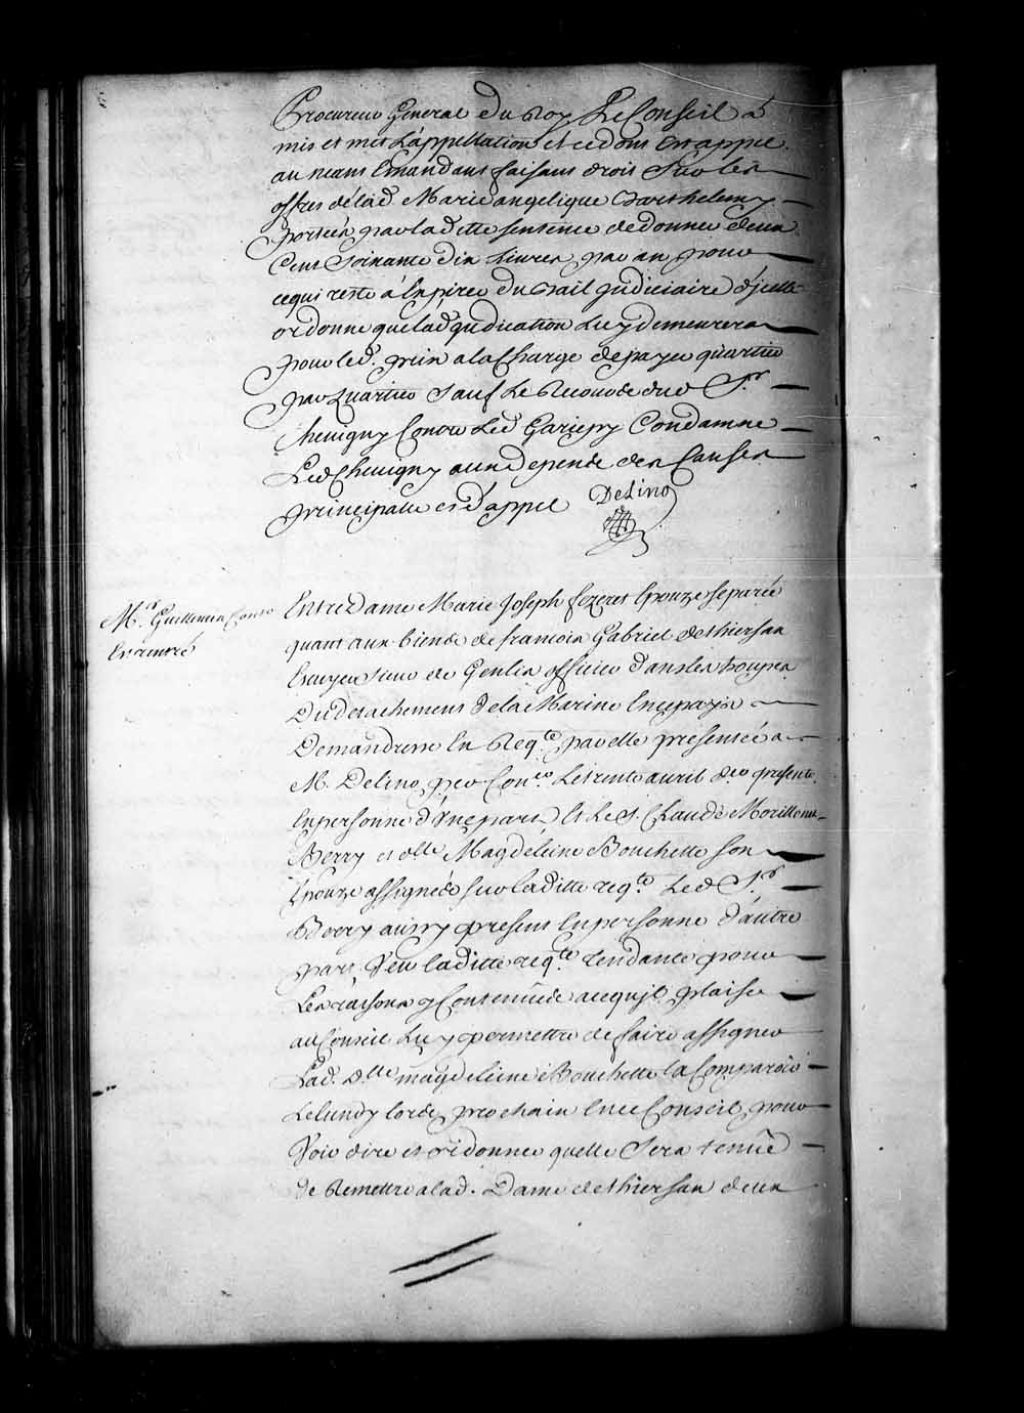 Procureur General du Roy Le Conseil a
mis et met L'appellation et ce dont Est appel
au neant Emandant faisant droit Sur les
offres de lad. Marie angelique Barthelemy
portées par lad.itte sentence de donner deux
Cent Soixante dix Livres par an pour
ce qui reste a Expirer du bail judiciaire d'jcelle
ordonne que lad. judication Luy demeurera
pour led. prix a la Charge de payer quartier
par Quartier Sauf Le Recours dud Sr.
Chevigny Contre Led Gariepy Condamne
Led Chevigny aux depends des Causes
principalle et d'appel Delino
Mr. Guillemin Conser
Entre Dame Marie Joseph fezeret Epouze separée
quant aux biens de francois Gabriel de thiersan
Escuyer sieur de Genlis officier dans les troupes
Du detachement de la Marine En ce pays
Demandresse En Reqte. par elle presentée a
M. Delino per Conser. Le trente avril der present
En personne d'une part, Et Le s. Claude Morillonet
Berry et dlle Magdeleine Bouchette son
Epouze assignés sur laditte reqte. Led Sr.
Berry aussy present En personne d'autre
part, Veu laditte reqte. tendante pour
Les raisons y Contenües a ce qu'jl plaise
au Conseil Luy permettre de faire assigner
Lad. dlle magdeleine Bouchette a Comparoir
Le lundy lors prochain En ce Conseil pour
Voir dire et ordonner quelle Sera tenüe
de Remettre a lad. Dame de thiersan deux